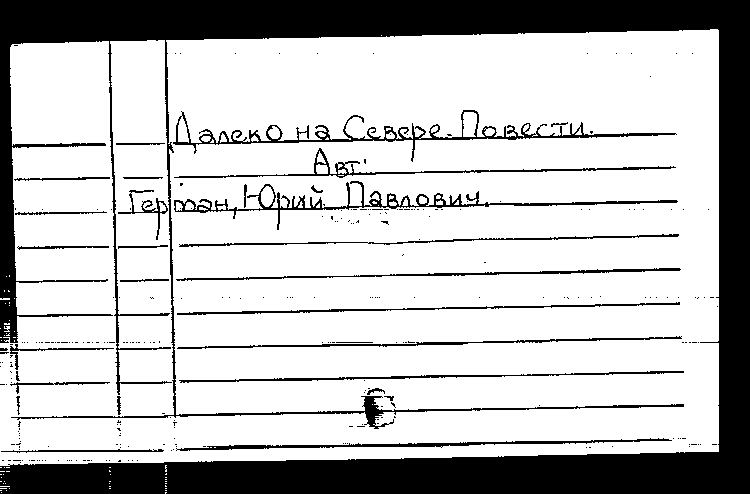 Далеко на Севере. Повести.
Авт:
Герман, Юрий Павлович.